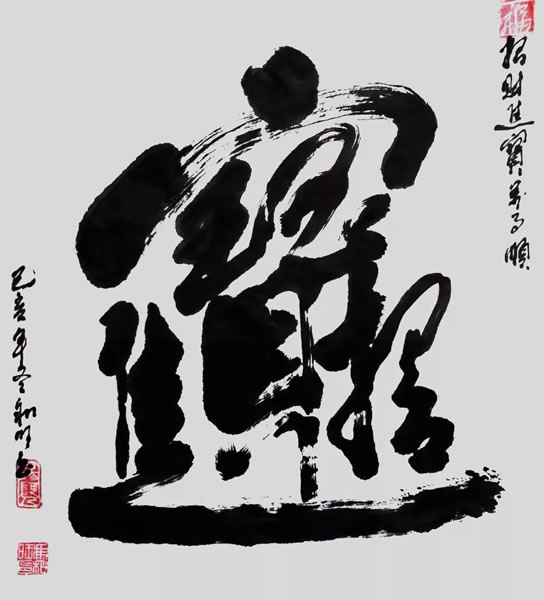 招財進寶萬事順
招財進寶
己亥年冬